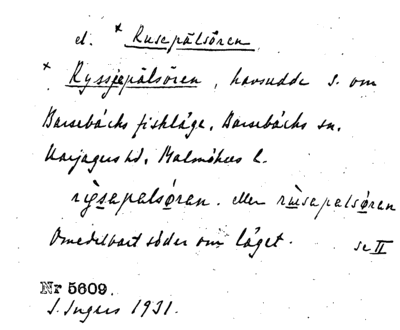 el. × Rusepålsören
× Ryssjepålsören, havsudde s. om
Barsebäcks fiskläge, Barsebäcks sn,
Harjagers hd, Malmöhus l.
rysapalsøren. eller rusapalsøren
Omedelbart söder om läget. se II
Nr 5609.
S. Ingers 1931.